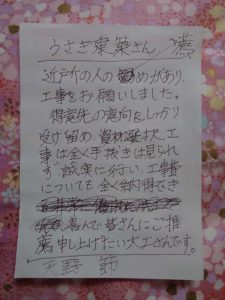 うさぎ建築さん 薦
近戸所の人の勧めがあり、
工事をお願いしました。
得意先の意向をしっかり
受け留め、資材選択、工
事は全く手抜きは見られ
ず誠実に行い、工事費
についても全く納得でき
喜んで皆さんにご推
薦申し上げたい大工さんです。
天野 節